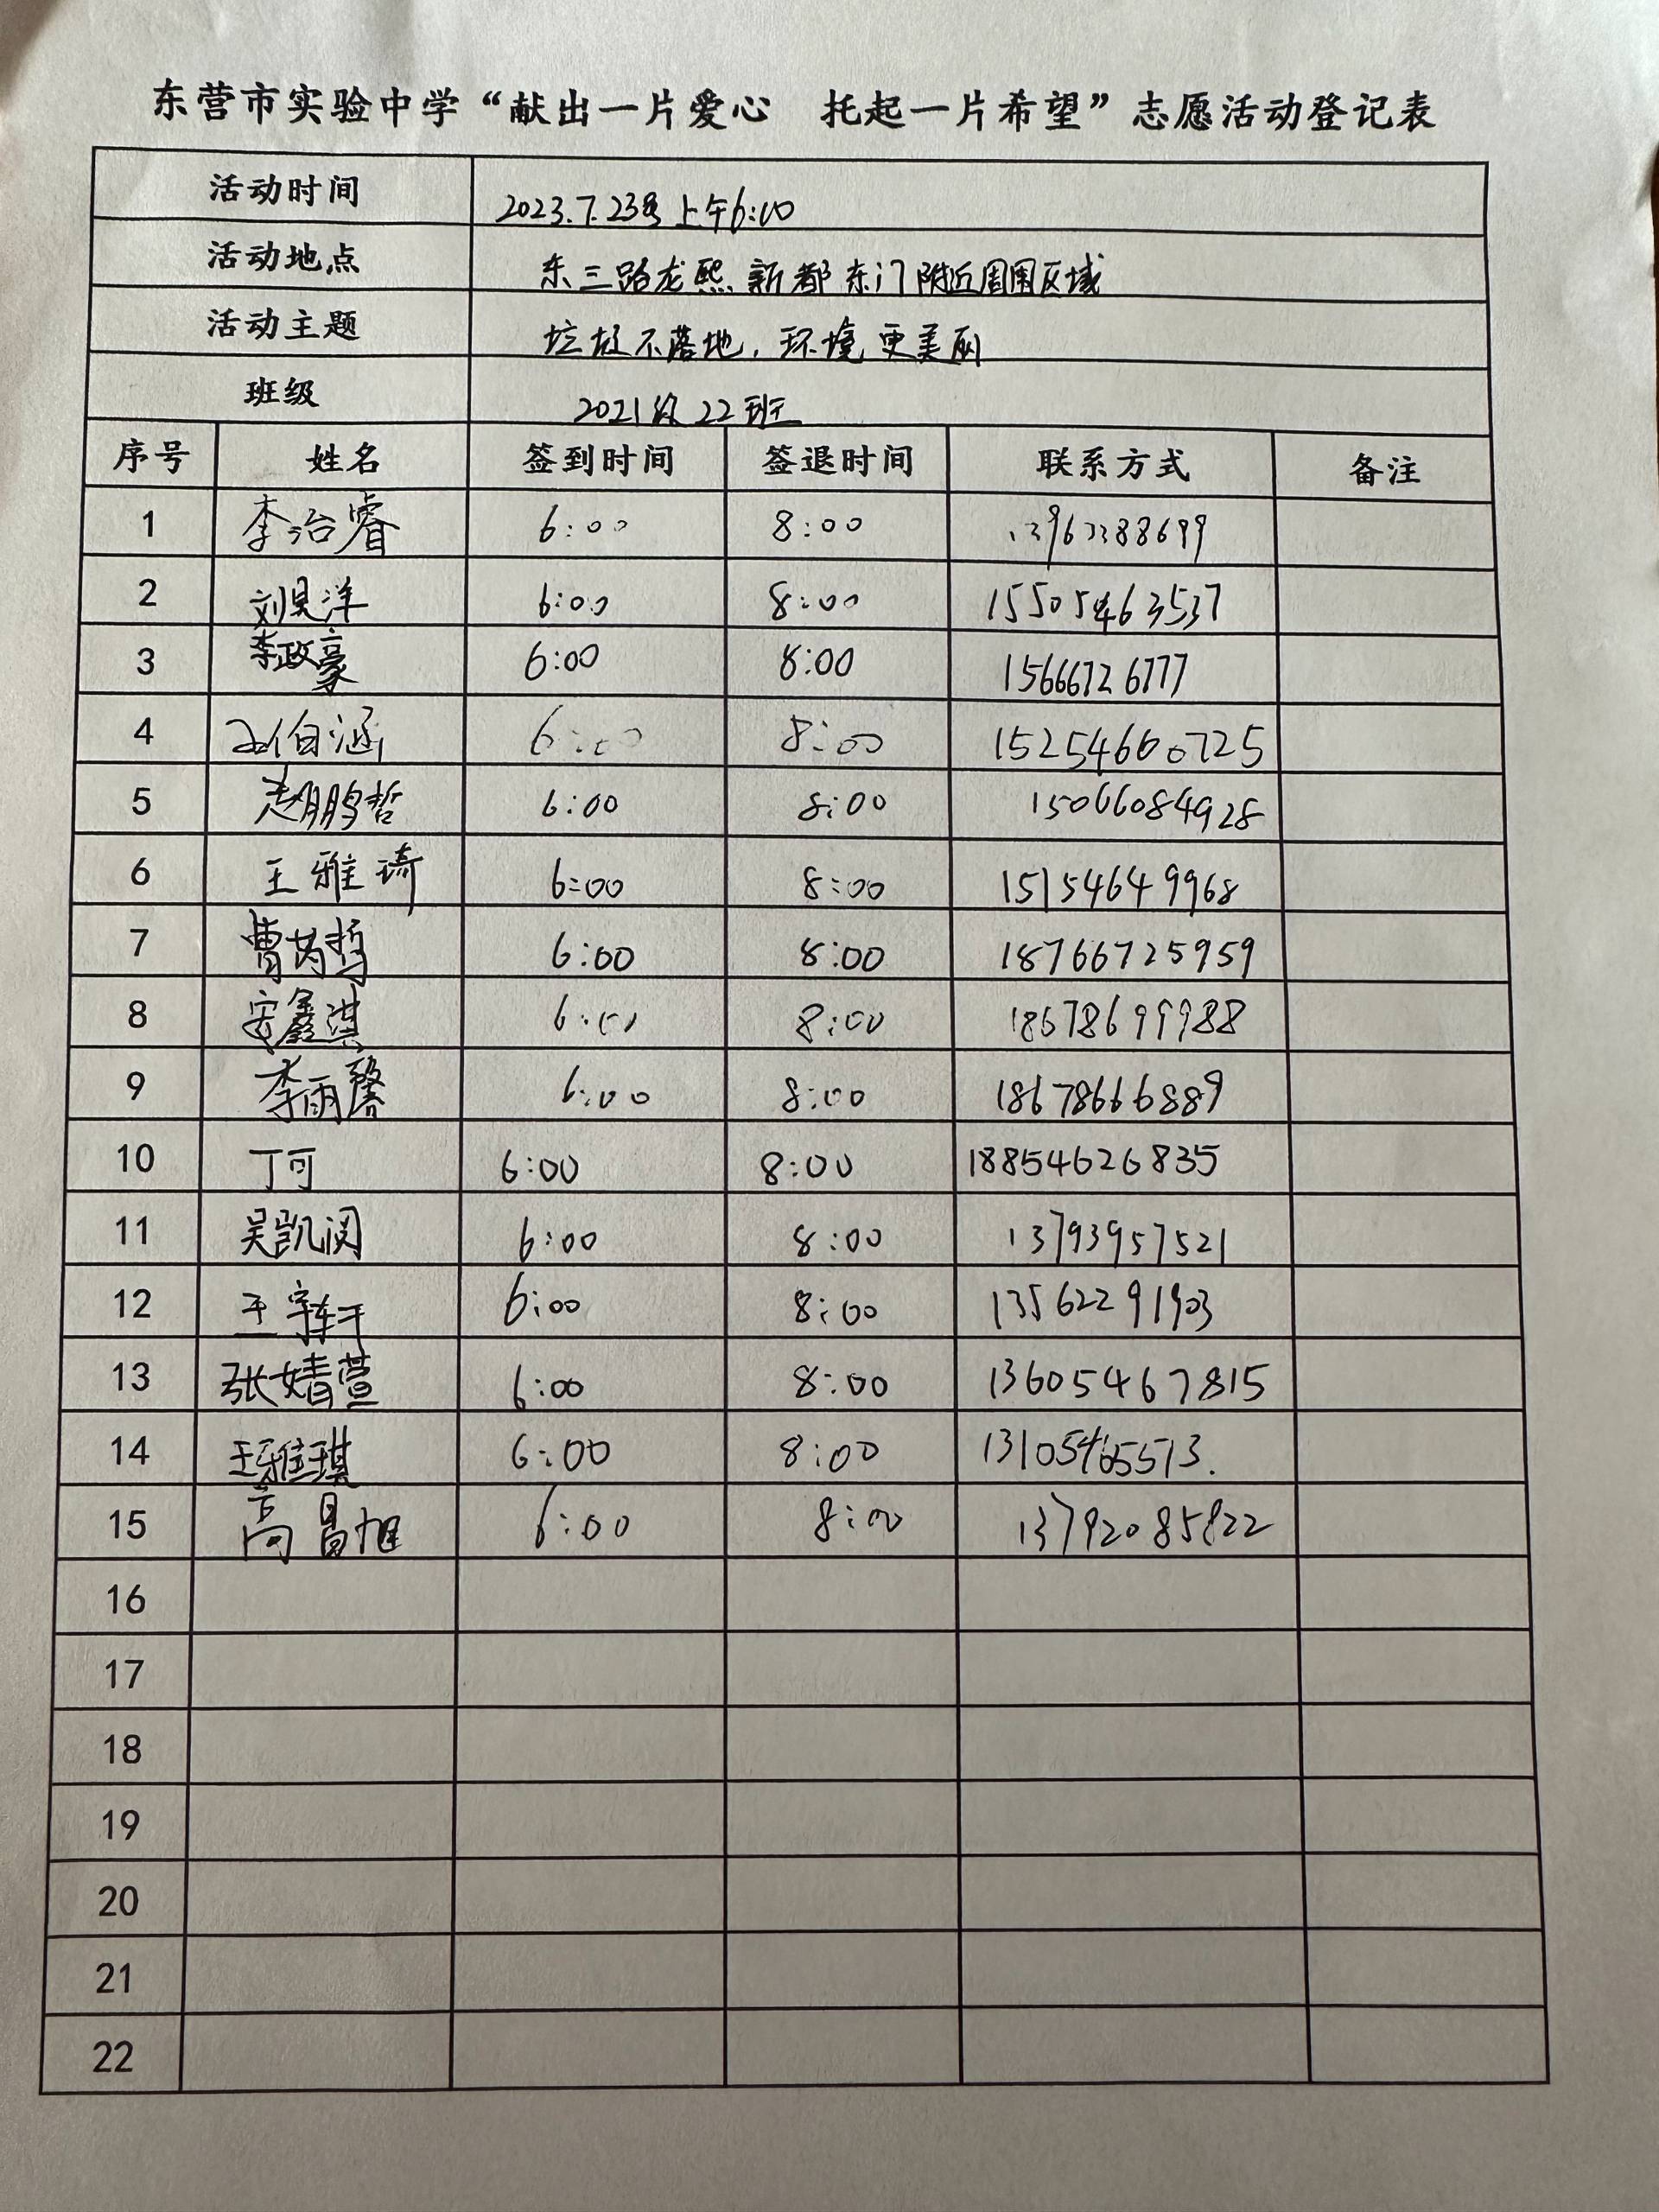 东营市实验中学“献出一片爱心 托起一片希望”志愿活动登记表
活动时间 2023.7.23号上午6:00
活动地点 东三路龙熙新都东门附近周围区域
活动主题 垃圾不落地，环境更美丽
班级 2021级22班
序号 姓名 签到时间 签退时间 联系方式 备注
1 李治睿 6:00 8:00
2 刘昊洋 6:00 8:00 15505463537
3 李政豪 6:00 8:00 15666726777
4 伯涵 6:00 8:00 15254660725
5 赵鹏哲 6:00 8:00 15066084928
6 王雅琦 6:00 8:00 15154649968
7 曹芮哲 6:00 8:00 18766725959
8 安鑫淇 6:00 8:00 18678699988
9 李雨馨 6:00 8:00 18678666889
10 丁可 6:00 8:00 18854626835
11 吴凯闵 6:00 8:00 13793957521
12 王宇轩 6:00 8:00 13562291903
13 张婧萱 6:00 8:00 13605467815
14 王雅琪 6:00 8:00 13105465513.
15 高昌旭 6:00 8:00 13792085822
16
17
18
19
20
21
22